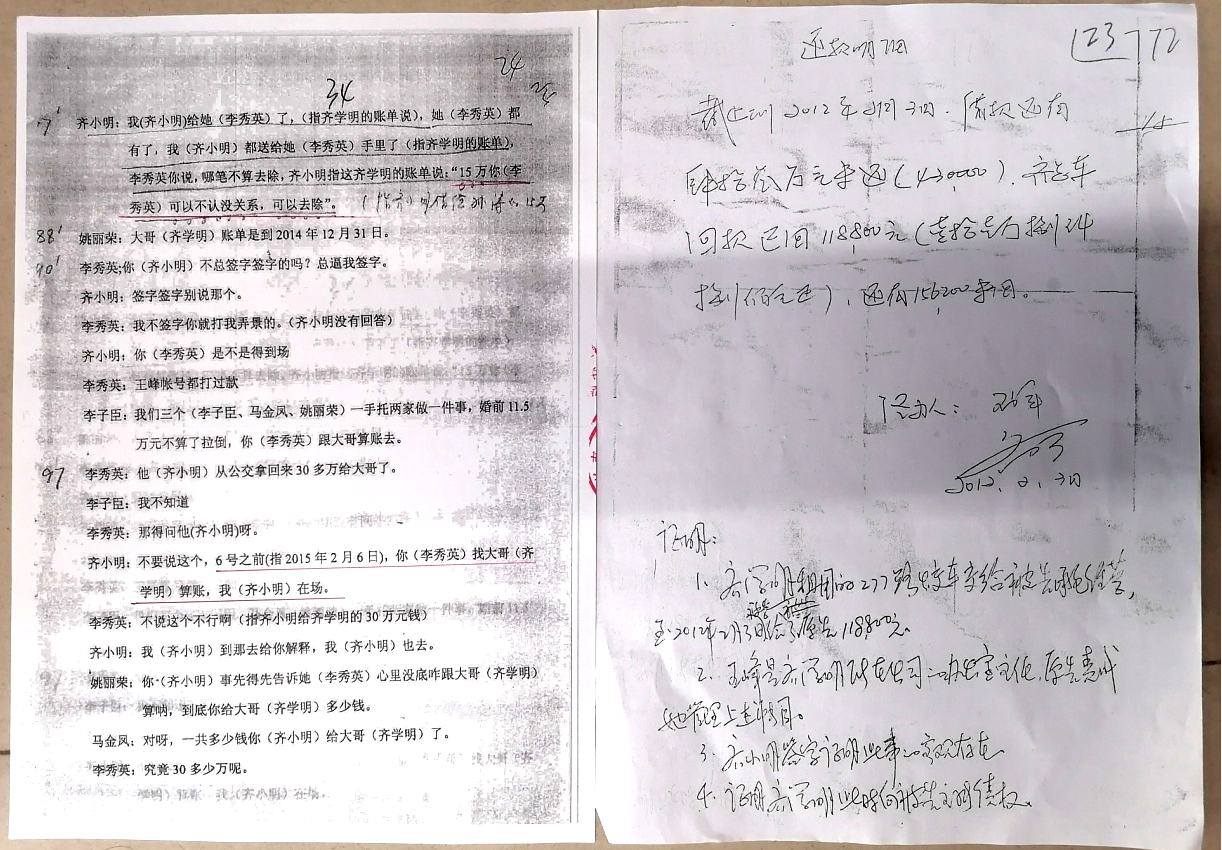 34
24
7'
齐小明：我(齐小明)给她（李秀英）了，（指齐学明的账单说），她（李秀英）都
有了，我（齐小明）都送给她（李秀英）手里了（指齐学明的账单），
李秀英你说，哪笔不算去除，齐小明指这齐学明的账单说：“15 万你（李
秀英）可以不认没关系，可以去除”。
88'
姚丽荣：大哥（齐学明）账单是到 2014 年 12 月 31 日。
90'
李秀英;你（齐小明）不总签字签字的吗？总逼我签字。
齐小明：签字签字别说那个。
李秀英：我不签字你就打我弄景的。（齐小明没有回答）
齐小明：你（李秀英）是不是得到场
李秀英：王峰帐号都打过款
李子臣：我们三个（李子臣、马金凤、姚丽荣）一手托两家做一件事，婚前 11.5
万元不算了拉倒，你（李秀英）跟大哥算账去。
97
李秀英：他（齐小明）从公交拿回来 30 多万给大哥了。
李子臣：我不知道
李秀英：那得问他(齐小明)呀。
齐小明：不要说这个，6 号之前(指 2015 年 2 月 6 日)，你（李秀英）找大哥（齐
学明）算账，我（齐小明）在场。
李秀英：不说这个不行啊（指齐小明给齐学明的 30 万元钱）
齐小明：我（齐小明）到那去给你解释，我（齐小明）也去。
姚丽荣：你（齐小明）事先得先告诉她（李秀英）心里没底咋跟大哥（齐学明）
算呐，到底你给大哥（齐学明）多少钱。
马金凤：对呀，一共多少钱你（齐小明）给大哥（齐学明）了。
李秀英：究竟 30 多少万呢。
还款明细
123 72
截止到 2012 年 2月3日，借款还有
肆拾叁万元未还（430,000）．
回款已回 118800元（壹拾壹万捌仟
捌佰元正），还有156200未回。
经办人：王峰
2012．2．3日
证明：
1、齐学明租用的277路公交车交给被告承包经营，
至2012年2月3日给了原告118800元。
2、王峰是齐学明所在公司办公室主任，原告责成
她管理上述账目。
3、齐小明签字证明此事的客观存在
4、证明齐学明此时向被告主张债权。